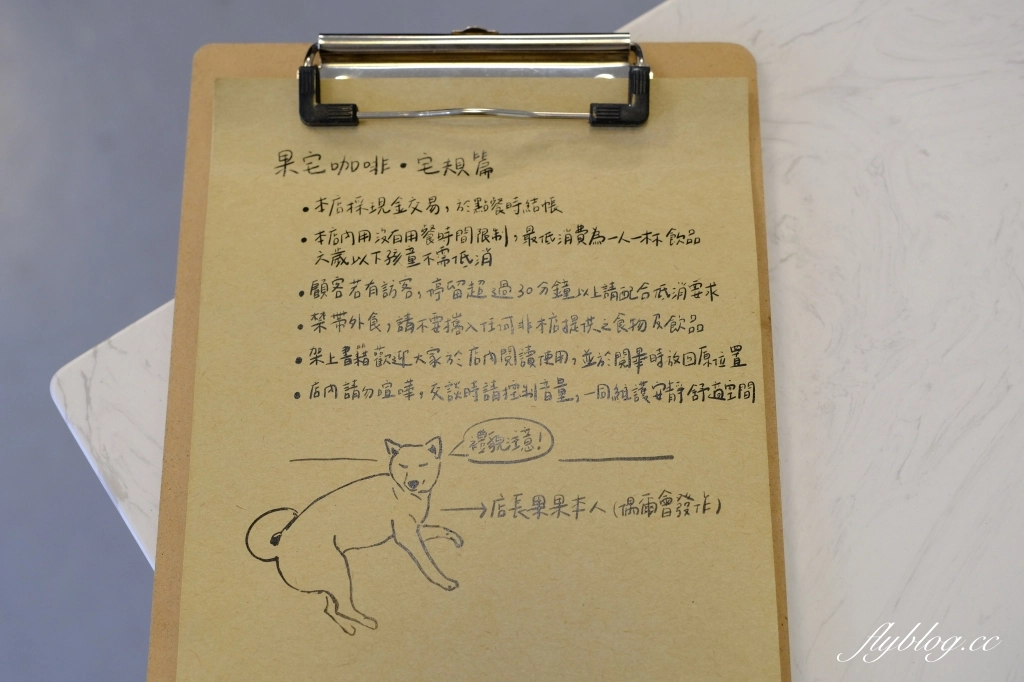 果宅咖啡•宅規篇
•本店採現金交易,於點餐時結帳
•本店內用沒有用餐時間限制,最低消費為一人一杯飲品
六歲以下孩童不需低消
•顧客若有訪客,停留超過30分鐘以上請配合低消要求
•禁帶外食,請不要攜入任何非本店提供之食物及飲品
•架上書籍歡迎大家於店內閱讀使用,並於閱畢時放回原位置
•店內請勿喧嘩,交談時請控制音量,一同維護安靜舒適空間
禮貌注意!
→店長果果本人(偶爾會發作)
flyblog.cc